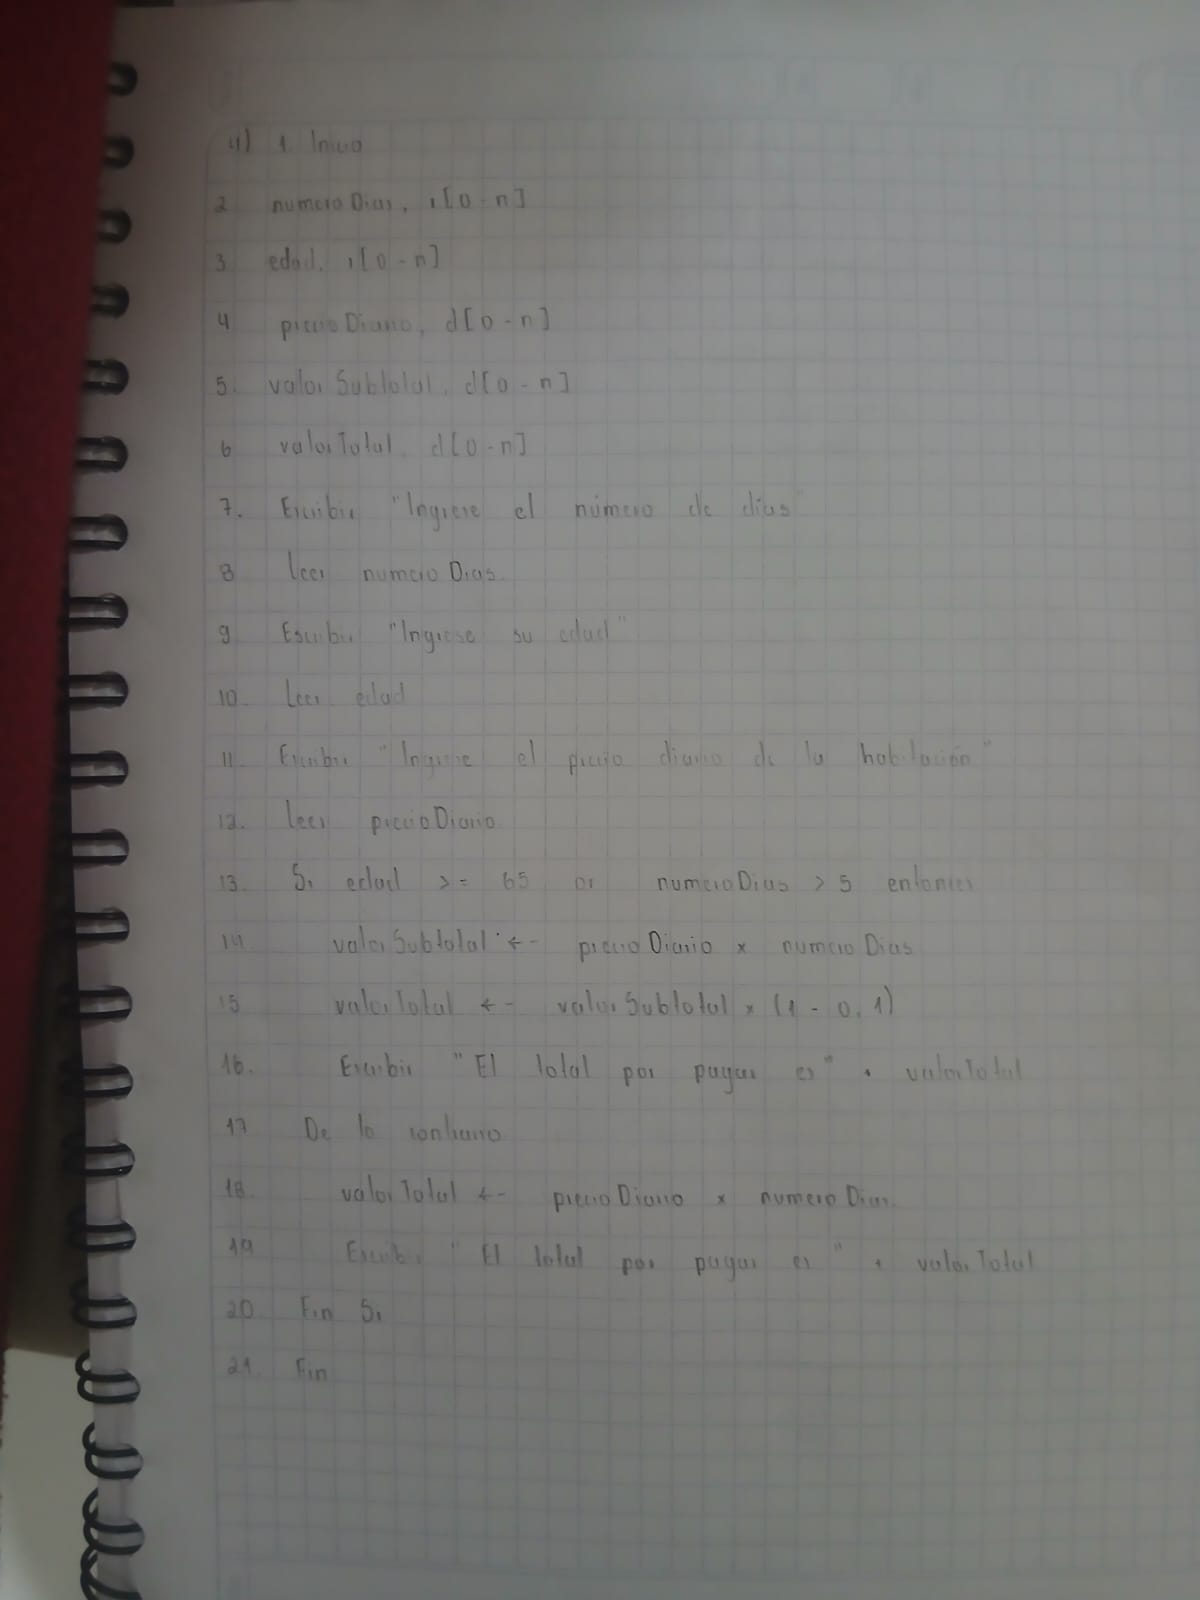 4) 1. Inicio
2 numeroDias, i[0-n]
3 edad, i[0-n]
4 precioDiario, d[0-n]
5. valorSubtotal, d[0-n]
6 valorTotal, d[0-n]
7. Escribir "Ingrese el número de días"
8 leer numeroDias
9 Escribir "Ingrese su edad"
10. Leer edad
11 Escribir "Ingrese el precio diario de la habitación"
12. leer precioDiario
13. Si edad >= 65 or numeroDias > 5 entonces
14 valorSubtotal <- precioDiario x numeroDias
15 valorTotal <- valorSubtotal x (1 - 0.1)
16. Escribir "El total por pagar es" + valorTotal
17 De lo contrario
18. valorTotal <- precioDiario x numeroDias
19 Escribir "El total por pagar es" + valorTotal
20. Fin Si
21. Fin